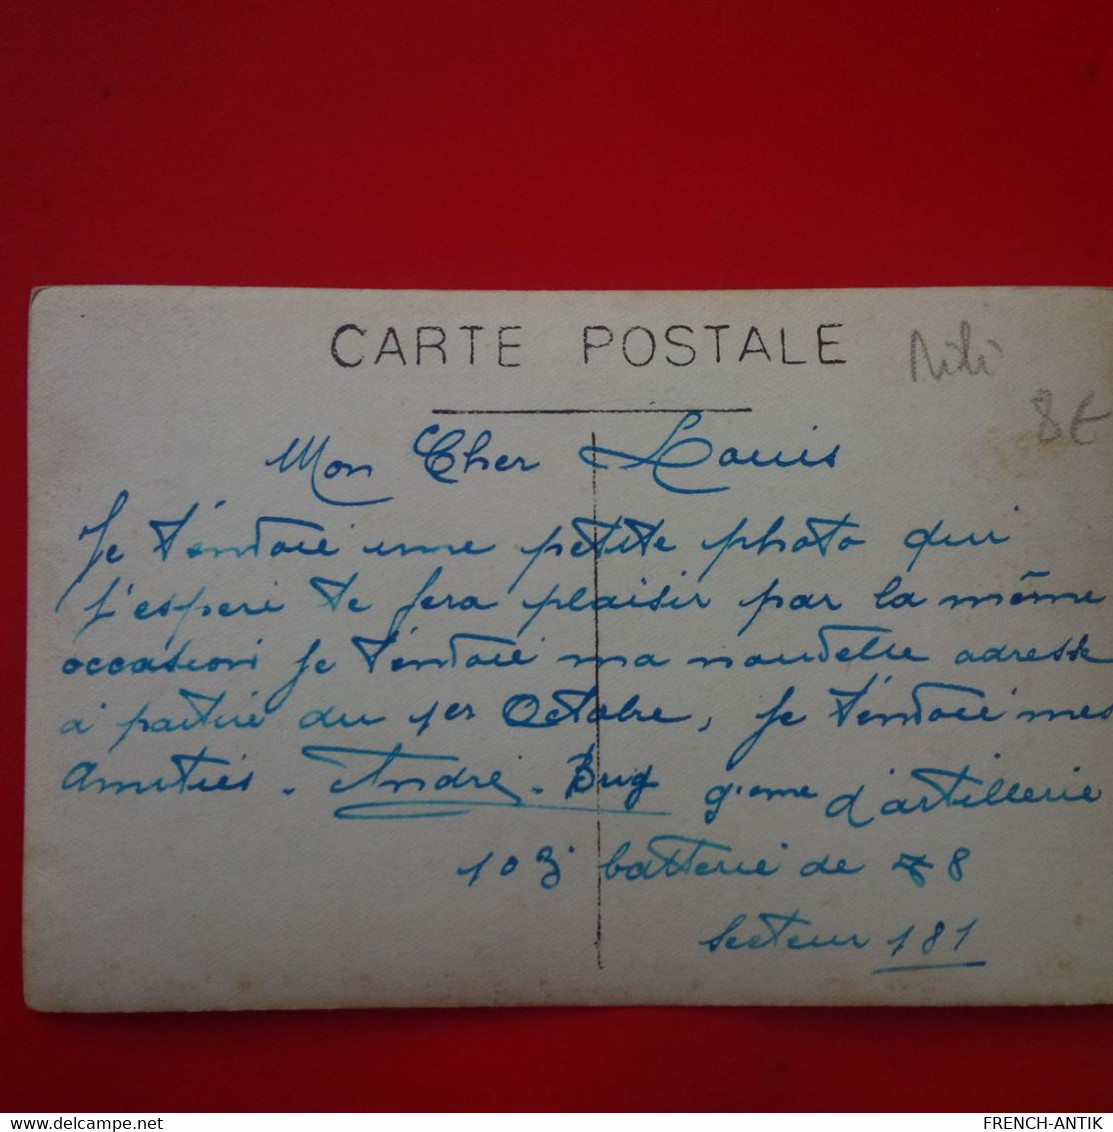 CARTE POSTALE
8€
Mon Cher Louis
Je t'envoie une petite photo qui
j'espere te fera plaisir par la même
occasion je t'envoie ma nouvelle adresse
a partir du 1er Octobre, je t'envoie mes
amitiés. André. Brig 9ieme d'artillerie
103 batterie de 58
Secteur 181
delcampe.net
FRENCH-ANTIK